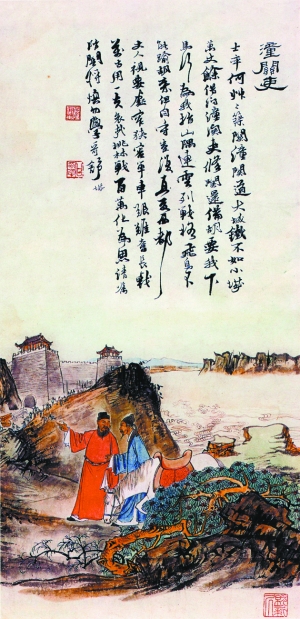 潼關吏
士卒何艸々築城潼關道大城鐵不如小城
萬丈餘借問潼關吏修關還備胡要我下
馬行為我指山隅連雲列戰格飛鳥不
能踰胡來但自守豈復憂西都
丈人視要處窄狹容單車艱難奮長戟
萬古用一夫哀哉桃林戰百萬化為魚請囑
防關將慎勿學哥舒